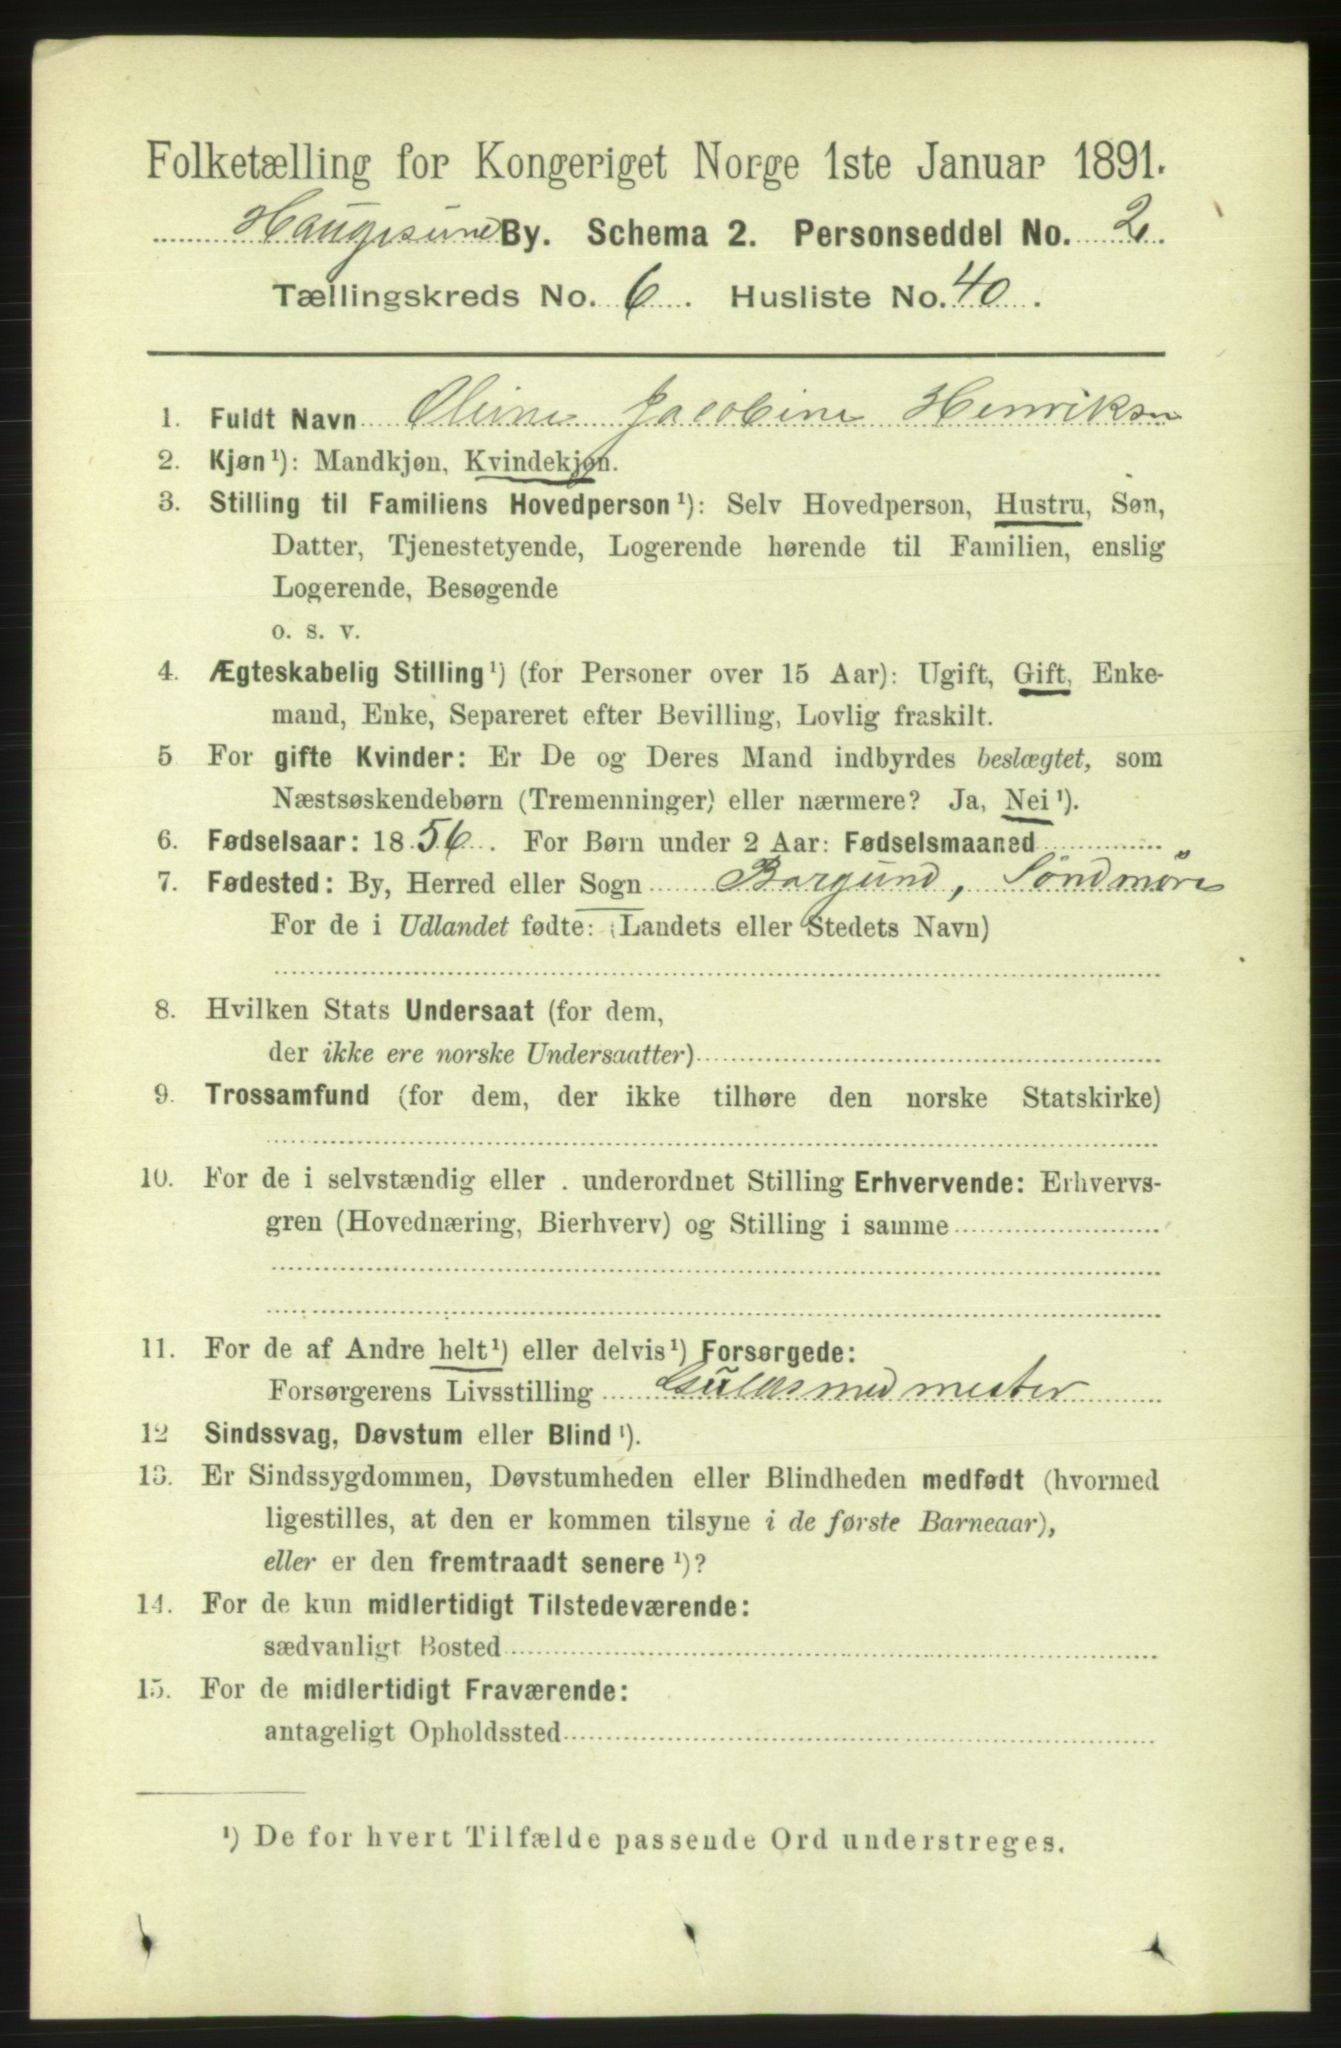 Folketælling for Kongeriget Norge 1ste Januar 1891.
Haugesund By. Schema 2. Personseddel No. 2.
Tællingskreds No. 6. Husliste No. 40.
1. Fuldt Navn Oline Jacobine Henriksen
2. Kjøn¹): Mandkjøn, Kvindekjøn.
3. Stilling til Familiens Hovedperson¹): Selv Hovedperson, Hustru, Søn,
Datter, Tjenestetyende, Logerende hørende til Familien, enslig
Logerende, Besøgende
o. s. v.
4. Ægteskabelig Stilling¹) (for Personer over 15 Aar): Ugift, Gift, Enke-
mand, Enke, Separeret efter Bevilling, Lovlig fraskilt.
5 For gifte Kvinder: Er De og Deres Mand indbyrdes beslægtet, som
Næstsøskendebørn (Tremenninger) eller nærmere? Ja, Nei¹).
6. Fødselsaar: 1856. For Børn under 2 Aar: Fødselsmaaned
7. Fødested: By, Herred eller Sogn Borgund, Søndmøre
For de i Udlandet fødte: (Landets eller Stedets Navn)
8. Hvilken Stats Undersaat (for dem,
der ikke ere norske Undersaatter)
9. Trossamfund (for dem, der ikke tilhøre den norske Statskirke)
10. For de i selvstændig eller . underordnet Stilling Erhvervende: Erhvervs-
gren (Hovednæring, Bierhverv) og Stilling i samme
11. For de af Andre helt¹) eller delvis¹) Forsørgede:
Forsørgerens Livsstilling Guldsmedmester
12 Sindssvag, Døvstum eller Blind¹).
13. Er Sindssygdommen, Døvstumheden eller Blindheden medfødt (hvormed
ligestilles, at den er kommen tilsyne i de første Barneaar),
eller er den fremtraadt senere¹)?
14. For de kun midlertidigt Tilstedeværende:
sædvanligt Bosted
15. For de midlertidigt Fraværende:
antageligt Opholdssted
¹) De for hvert Tilfælde passende Ord understreges.